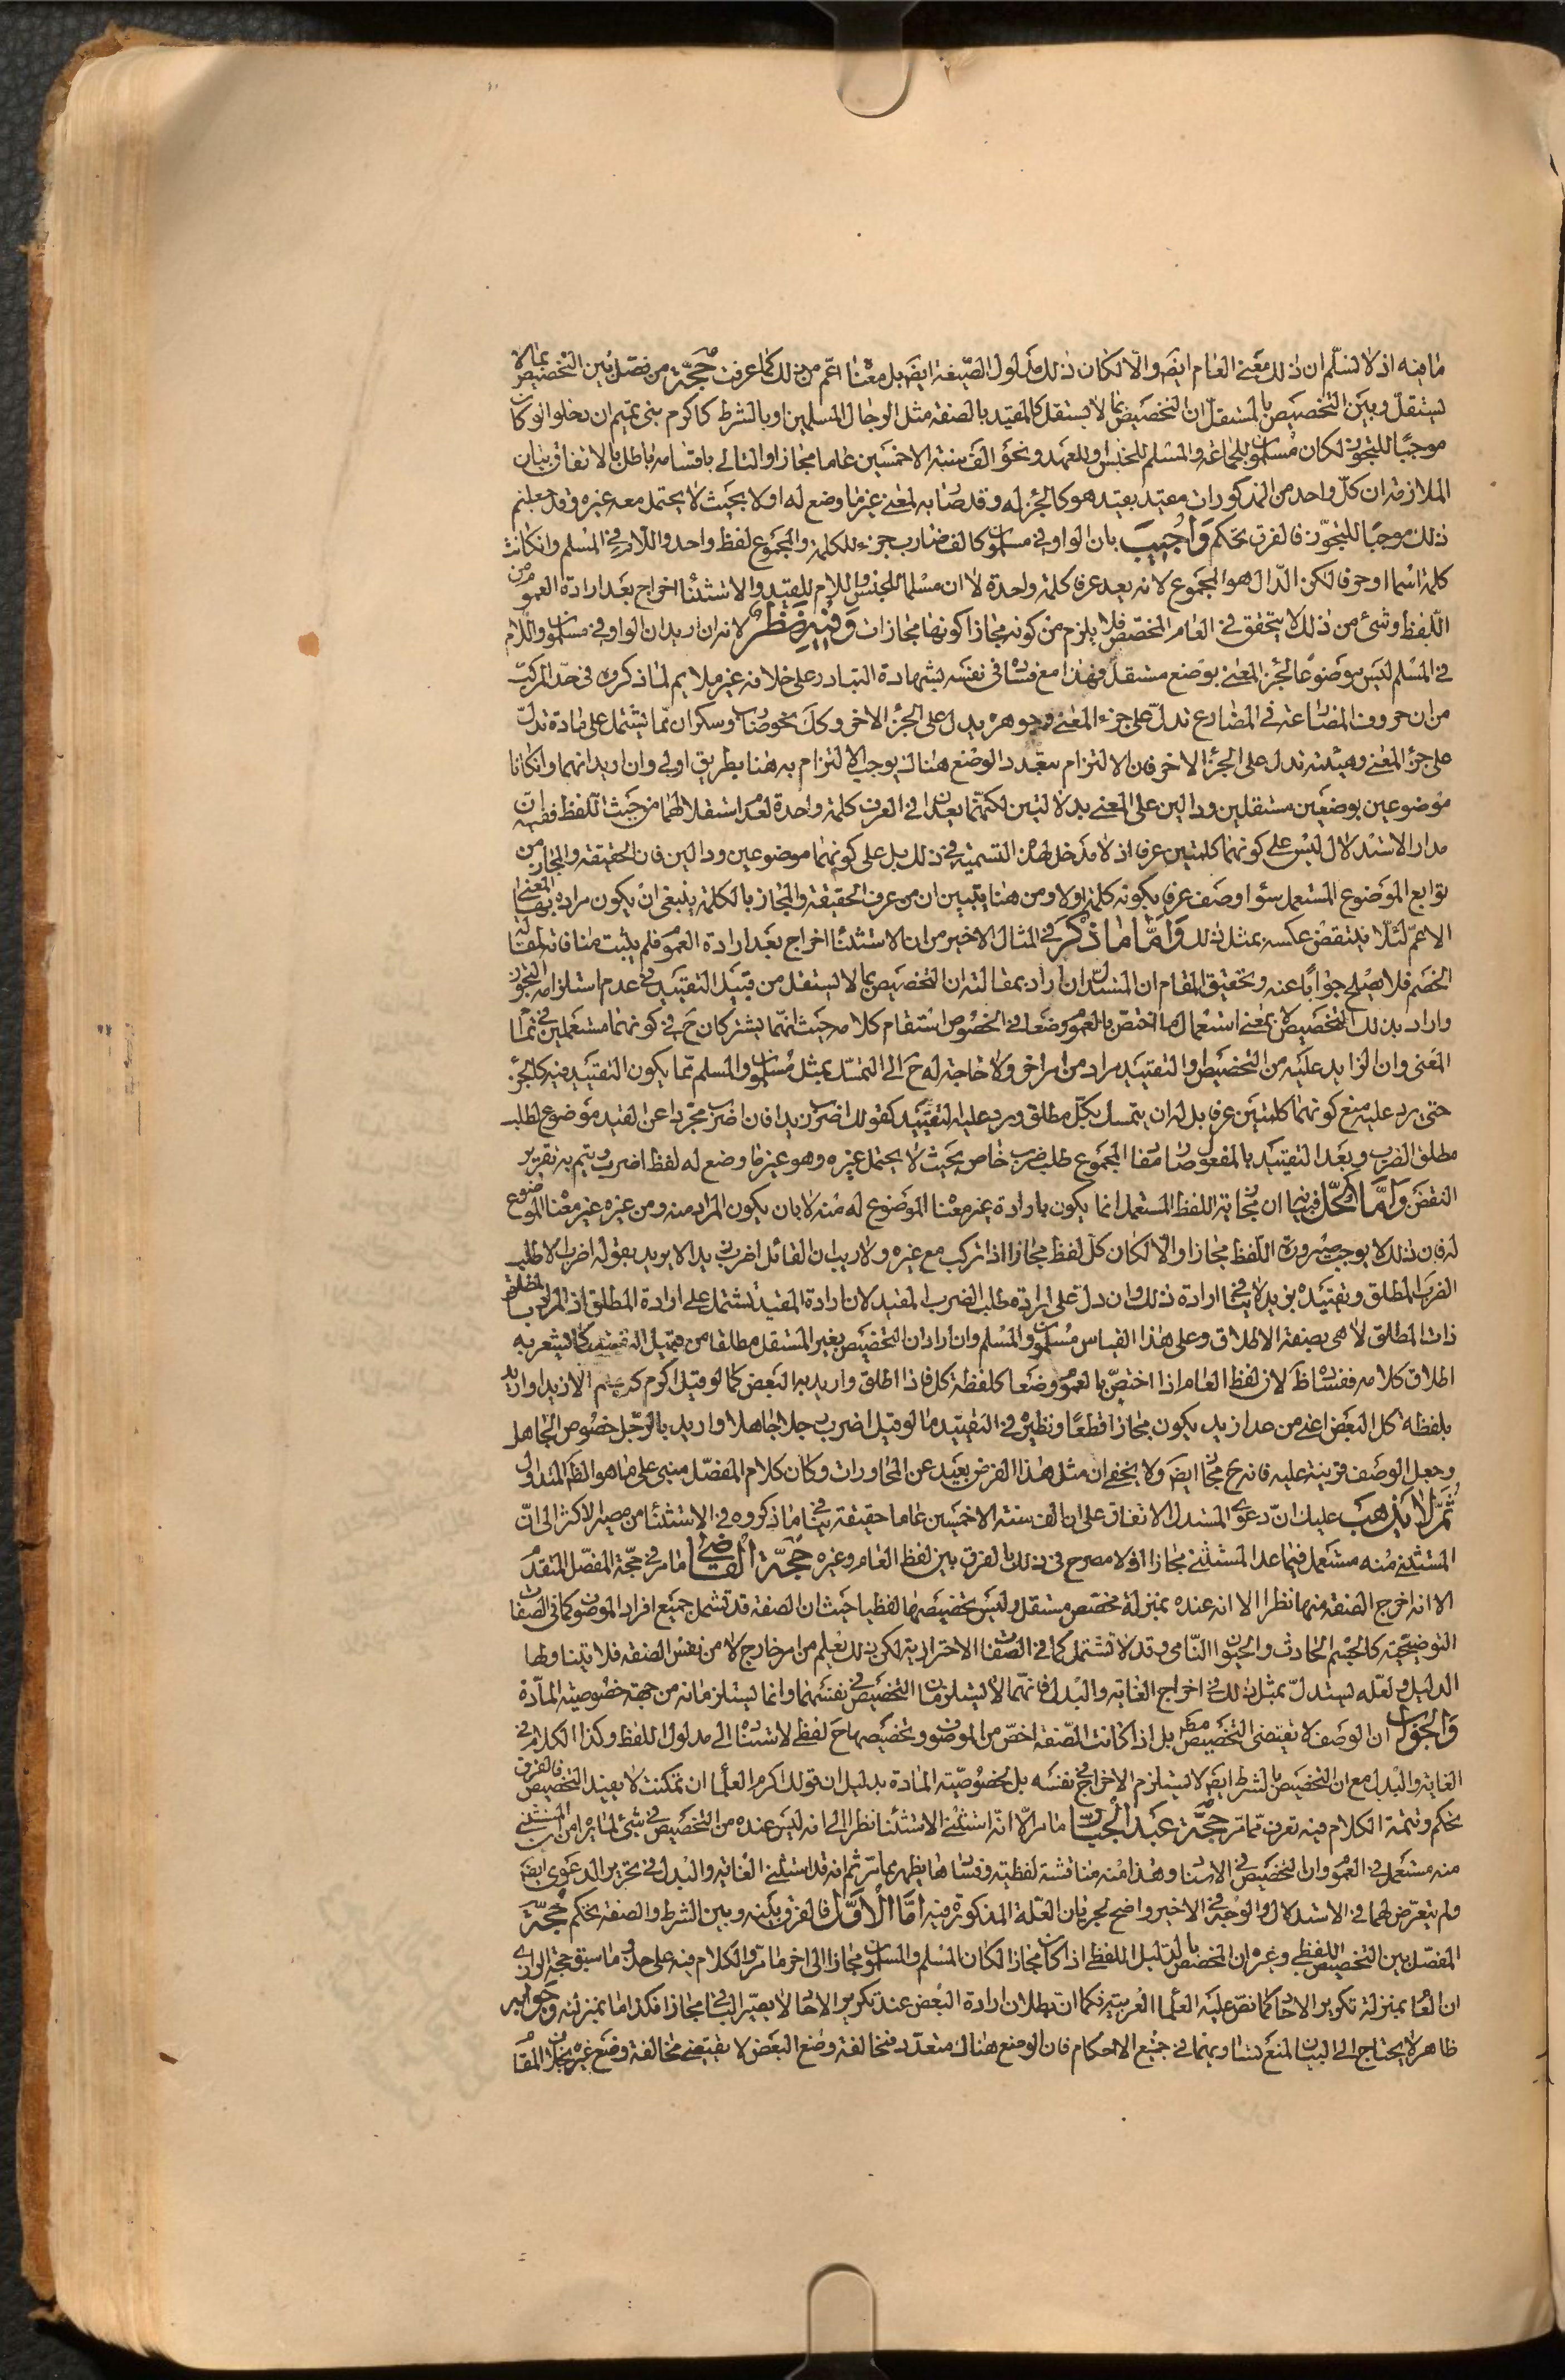 ما فيه اذ لا نسلّم ان ذلك معنى العام ايضا والّا لكان ذلك مدلول الصّيغة ايضا بل معناه اعم من ذلك كما عرفت حجّة من فصّل بين التخصيص بما لا
يستقلّ وبين التخصيص بالمستقلّ ان التخصيص بما لا يستقل كالمقيد بالصفة مثل الرجال المسلمين او بالشرط كاكرم بنى تميم ان دخلوا لو كان
موجبًا للتجوّز لكان مسلمون للجماعة والمسلم للجنس او للعهد ونحو الف سنة الا خمسين عاما مجازا والتالى باقسامه باطل بالاتفاق بيان
الملازمة ان كلّ واحد من المذكورات مقيد بقيد هو كالجزء له وقد صار به لمعنى غير ما وضع له اولا بحيث لا يحتمل معه غيره وقد جعلتم
ذلك موجبا للتجوّز فالفرق تحكم واجيب بان الواو فى مسلمون كالف ضارب جزء للكلمة والمجموع لفظ واحد واللّام فى المسلم وان كانت
كلمة اسما او حرفا لكن الدّال هو المجموع لانه يعد عرفا كلمة واحدة لا ان مسلما للجنس واللام للقيد والاستثناء اخراج بعد ارادة العموم من
اللّفظ وشئ من ذلك لا يتحقق فى العام المخصّص فلا يلزم من كونه مجازا كونها مجازات وفيه نظر لانه ان اريد ان الواو فى مسلمون واللّام
فى المسلم ليس موضوعًا لجزء المعنى بوضع مستقلّ فهذا مع فساده فى نفسه بشهادة التبادر على خلافه غير ملايم لما ذكروه فى حدّ المركّب
من ان حروف المضارعة فى المضارع تدلّ على جزء المعنى وجوهره يدل على الجزء الاخر وكل نحو ضارب وسكران ممّا يشتمل على مادة تدلّ
على جزء المعنى وهيئة تدل على الجزء الاخر فان الالتزام بتعدد الوضع هناك يوجب الالتزام به هنا بطريق اولى وان اريد انهما وان كانا
موضوعين بوضعين مستقلين ودالين على المعنى بدلالتين لكنّهما يعدان فى العرف كلمة واحدة لعدم استقلالهما من حيث اللّفظ ففيه ان
مدار الاستدلال ليس على كونهما كلمتين عرفا اذ لا مدخل لهذه التسمية فى ذلك بل على كونهما موضوعين ودالين فان الحقيقة والمجاز من
توابع الموضوع المستعمل سواء وصف عرفا بكونه كلمة اولا ومن هنا يتبين ان من عرف الحقيقة والمجاز بالكلمة ينبغى ان يكون مراده بها المعنى
الاعمّ لئلّا ينتقض عكسه بمثل ذلك وامّا ما ذكر فى المثال الاخير من ان الاستثناء اخراج بعد ارادة العموم فلم يثبت منافاته لمقالة
الخصم فلا يصلح جوابًا عنه وتحقيق المقام ان المستدل ان اراد بمقالته ان التخصيص بما لا يستقل من قبيل التقييد فى عدم استلزامه التجوّز
واراد بذلك التخصيص لا بمعنى استعمال ما اختصّ بالعموم وضعا فى الخصوص استقام كلامه حيث انّهما يشتركان ح فى كونهما مستعملين فى تمام
المعنى وان الزايد عليه من التخصيص او التقييد مراد من امر اخر ولا حاجة له ح الى التمسّك بمثل مسلمون والمسلم ممّا يكون التقييد فيه كالجزء
حتى يرد عليه منع كونهما كلمتين عرفا بل له ان يتمسك بكلّ مطلق ورد عليه التقييد كقولك اضرب زيدا فان اضرب مجرّدا عن القيد موضوع لطلب
مطلق الضرب وبعد التقييد بالمفعول صار مفاد المجموع طلب ضرب خاص بحيث لا يحتمل غيره وهو غير ما وضع له لفظ اضرب ويتم به تقرير
النقض وامّا الحلّ فهو ان مجازية اللفظ المستعمل انما يكون بارادة غير معناه الموضوع له منه لا بان يكون المراد منه ومن غيره غير معناه الموضوع
له فان ذلك لا يوجب صيرورة اللّفظ مجازا والّا لكان كلّ لفظ مجازا اذا تركب مع غيره ولا ريب ان القائل اضرب زيدا لا يريد بقوله اضرب الا طلب
الضرب المطلق وتقييده بزيد لا ينافى ارادة ذلك وان دل على ارادة طلب الضرب المقيد لان ارادة المقيد تشتمل على ارادة المطلق اذ المراد بالمطلق
ذات المطلق لا هى بصفة الاطلاق وعلى هذا القياس مسلمون والمسلم وان اراد ان التخصيص بغير المستقل مطلقا من قبيل التقييد كما يشعر به
اطلاق كلامه ففساده ظ لان لفظ العام اذا اختصّ بالعموم وضعا كلفظة كل فاذا اطلق واريد به البعض كما لو قيل اكرم كل الا زيدا واريد
بلفظة كل البعض اعنى من عدا زيد يكون مجازا قطعًا ونظيره فى التقييد ما لو قيل اضرب رجلا جاهلا واريد بالرّجل خصوص الجاهل
وجعل الوصف قرينة عليه فانه ح مجاز ايضا ولا يخفى ان مثل هذا الفرض بعيد عن المحاورات وكان كلام المفصّل مبنى على ما هو الظ المتداول
ثمّ لا يذهب عليك انّ دعوى المستدل الاتفاق على ان الف سنة الا خمسين عاما حقيقة ينافى ما ذكروه فى الاستثناء من مصير الاكثر الى انّ
المستثنى منه مستعمل فيما عدا المستثنى مجازا اذ لا مصرح فى ذلك بالفرق بين لفظ العام وغيره حجّة القاضى ما مر فى حجّة المفصّل المتقدم
الا انه اخرج الصفة منها نظرا الا انه عنده بمنزلة مخصّص مستقل وليس تخصيصها لفظيا حيث ان الصفة قد تشمل جميع افراد الموصوف كما فى الصفات
التوضيحية كالجسم الحادث والحيوان النّامى وقد لا تشتمل كما فى الصفات الاحترازية لكن ذلك يعلم من امر خارج لا من نفس الصفة فلا يتناولها
الدليل ولعلّه يستدلّ بمثل ذلك فى اخراج الغاية والبدل فانّهما لا يستلزمان التخصيص فى نفسهما وانما يستلزمانه من جهة خصوصية المادّة
والجواب ان الوصف لا يقتضى التخصيص مط بل اذا كانت الصّفة اخصّ من الموصوف وتخصيصها ح لفظى لاستناده الى مدلول اللفظ وكذا الكلام فى
الغاية والبدل مع ان التخصيص بالشرط ايضا لا يستلزم الاخراج فى نفسه بل بخصوصيّة المادة بدليل ان قولك اكرم العلماء ان تمكنت لا يفيد التخصيص فالفرق
تحكم وتتمة الكلام فيه تعرف ممّا مرّ حجّة عبد الجبّار ما مر الّا انّه استثنى الاستثناء نظرا الى انه ليس عنده من التخصيص فى شئ لما مر من ان المستثنى
منه مستعمل فى العموم وان التخصيص فى الاسناد وهذا منه مناقشة لفظية وفسادها يظهر بما مر ثم انه قد استثنى الغاية والبدل فى تحرير الدعوى ايضا
ولم يتعرّض لهما فى الاستدلال والوجه فى الاخير واضح لجريان العلّة المذكورة فيه امّا الاوّل فالفرق بينه وبين الشرط والصفة تحكم حجّة
المفصّل بين التخصيص اللفظى وغيره ان المخصّص بالدّليل اللفظى اذا كان مجازا لكان المسلم والمسلمون مجازا الى اخر ما مرّ والكلام فيه على حذو ما سبق حجّة الرازى
ان العام بمنزلة تكرير الاحاد كما نصّ عليه العلماء العربية فكما انّ بطلان ارادة البعض عند تكرير الاحاد لا يصيّر الباقى مجازا فكذا ما بمنزلته وجوابه
ظاهر لا يحتاج الى البيان لمنع تساويهما فى جميع الاحكام فان الوضع هناك متعدّد فمخالفة وضع البعض لا يقتضى مخالفة وضع غيره بخلاف المقام